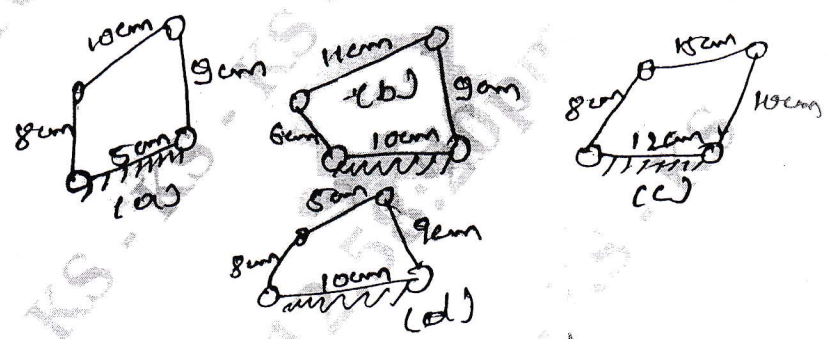 10cm
9cm
8cm
5cm
(a)
11cm
(b)
9cm
6cm
10cm
15cm
8cm
10cm
12cm
(c)
5cm
9cm
8cm
10cm
(d)
KS - KS - KS